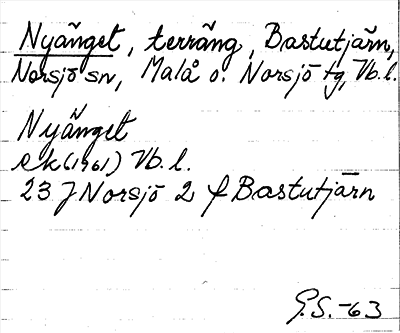 Nyänget, terräng, Bastutjärn,
Norsjö sn, Malå o. Norsjö tg, Vb. l.
Nyänget
ek (1961) Vb. l.
23 J Norsjö 2 f Bastutjärn
G.S. -63